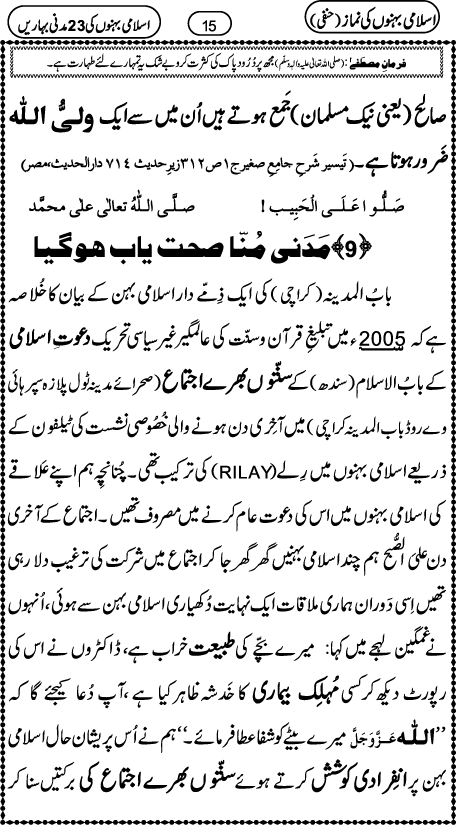 اسلامی بہنوں کی نماز (حنفی)
15
اسلامی بہنوں کی 23 مدنی بہاریں
فرمانِ مصطَفٰے: (صلی اللہ تعالیٰ علیہ والہ وسلم) مجھ پر دُرُودِ پاک کی کثرت کرو بے شک یہ تمہارے لئے طہارت ہے۔
صالح (یعنی نیک مسلمان) جَمع ہوتے ہیں اُن میں سے ایک ولیُّ اللہ
ضَرور ہوتا ہے۔ (تیسیر شَرحِ جامِعِ صغیر ج١ ص٣١٢ زیرِ حدیث ٧١٤ دارالحدیث،مصر)
صَلُّوا عَلَی الْحَبِیب! صلَّی اللّٰہُ تعالٰی علٰی محمَّد
﴿9﴾ مَدَنی مُنّا صحت یاب ہوگیا
بابُ المدینہ (کراچی) کی ایک ذِمّے دار اسلامی بہن کے بیان کا خُلاصہ
ہے کہ 2005ء میں تبلیغِ قرآن وسنّت کی عالمگیر غیر سیاسی تحریک دعوتِ اسلامی
کے بابُ الاسلام (سندھ) کے سنّتوں بھرے اجتماع (صحرائے مدینہ ٹول پلازہ سپر ہائی
وے روڈ باب المدینہ کراچی) میں آخِری دن ہونے والی خُصُوصی نشست کی ٹیلیفون کے
ذریعے اسلامی بہنوں میں رِلے (RILAY) کی ترکیب تھی۔ چُنانچِہ ہم اپنے علاقے
کی اسلامی بہنوں میں اس کی دعوت عام کرنے میں مصروف تھیں۔ اجتماع کے آخری
دن علَی الصُّبح ہم چند اسلامی بہنیں گھر گھر جا کر اجتماع میں شرکت کی ترغیب دلا رہی
تھیں اِسی دَوران ہماری ملاقات ایک نہایت دُکھیاری اسلامی بہن سے ہوئی، اُنہوں
نے غمگین لہجے میں کہا: میرے بچّے کی طبیعت خراب ہے، ڈاکٹروں نے اس کی
رپورٹ دیکھ کر کسی مُہلِک بیماری کا خَدشہ ظاہر کیا ہے، آپ دُعا کیجئے گا کہ
”اللہ عَزَّوَجَلَّ میرے بیٹے کو شفا عطا فرمائے۔“ ہم نے اُس پریشان حال اسلامی
بہن پر اِنفِرادی کوشش کرتے ہوئے سنّتوں بھرے اجتماع کی برکتیں سنا کر